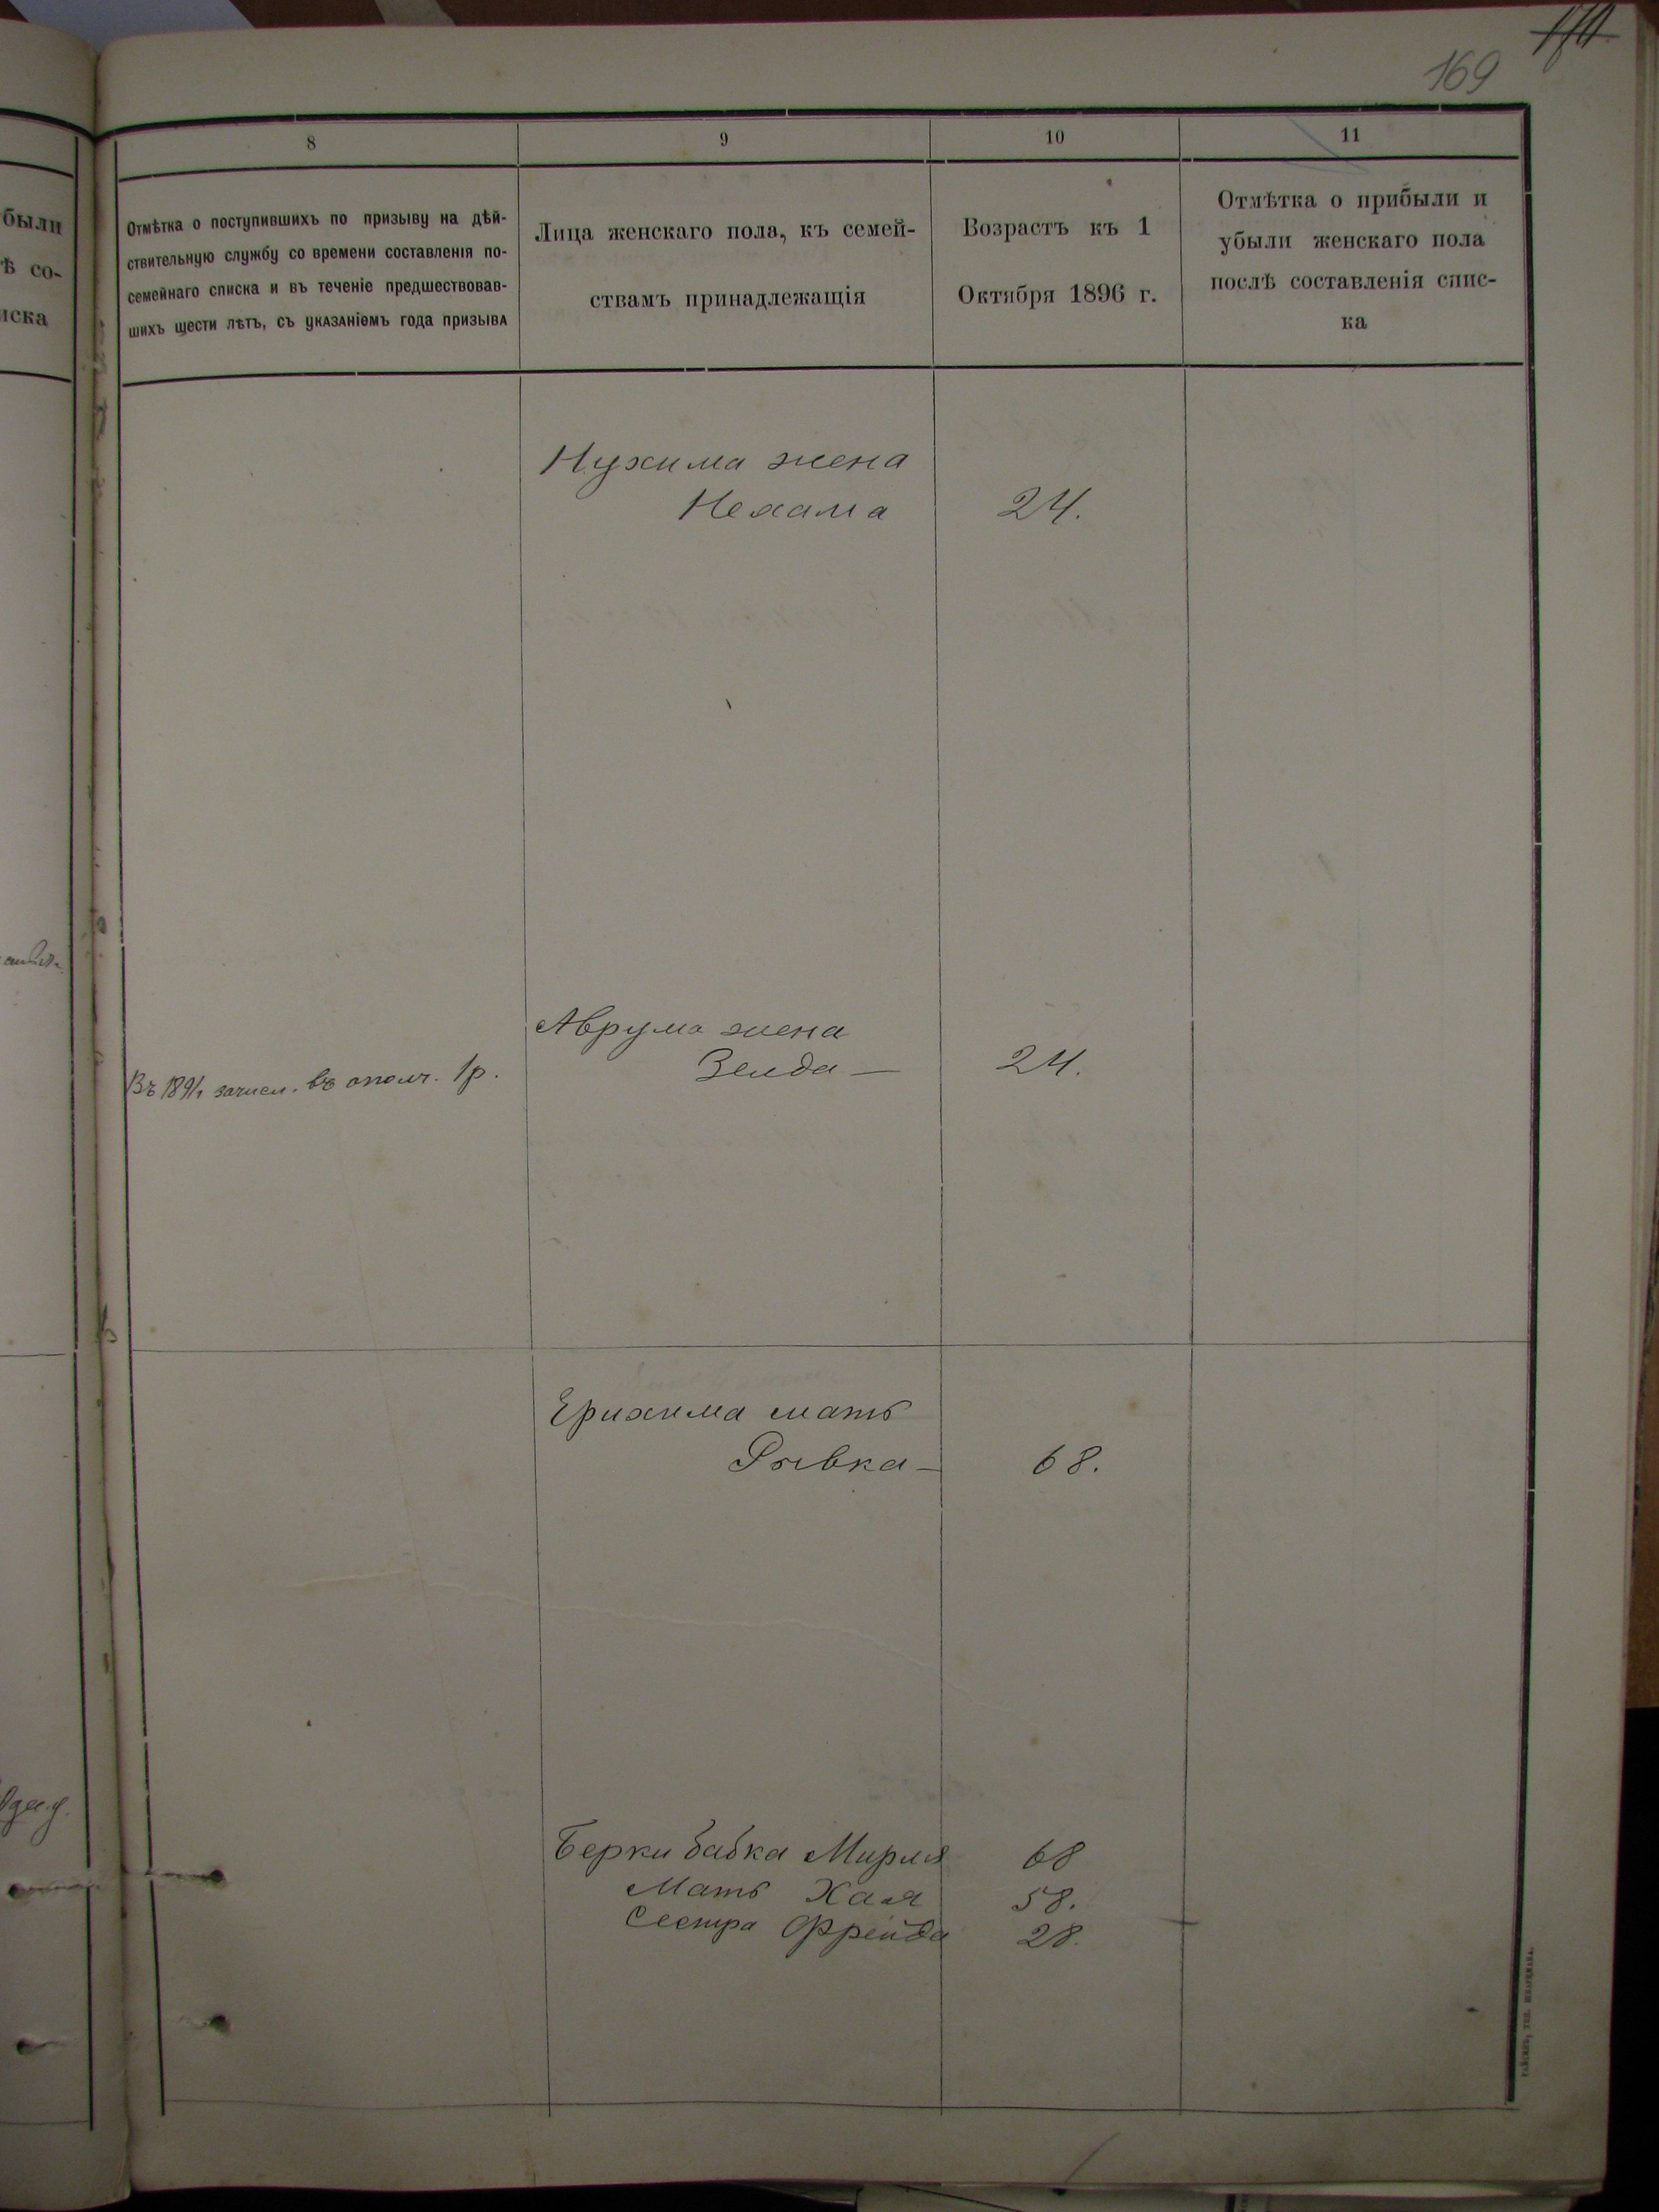 169
были
ѣ со-
иска
8
9
10
11
Отмѣтка о поступившихъ по призыву на дѣй-
ствительную службу со времени составленія по-
семейнаго списка и въ теченіе предшествовав-
шихъ щести лѣтъ, съ указаніемъ года призыва
Лица женскаго пола, къ семей-
ствамъ принадлежащія
Возрастъ къ 1
Октября 1896 г.
Отмѣтка о прибыли и
убыли женскаго пола
послѣ составленія спис-
ка
Нухима жена
Нехама 24.
Аврума жена
Зелда — 24.
Въ зачисл. въ ополч. 1 р.
Ерихима мать
Рывка — 68.
Берки бабка Мирля 68
Мать Хая 58.
Сестра Фрейда 28.